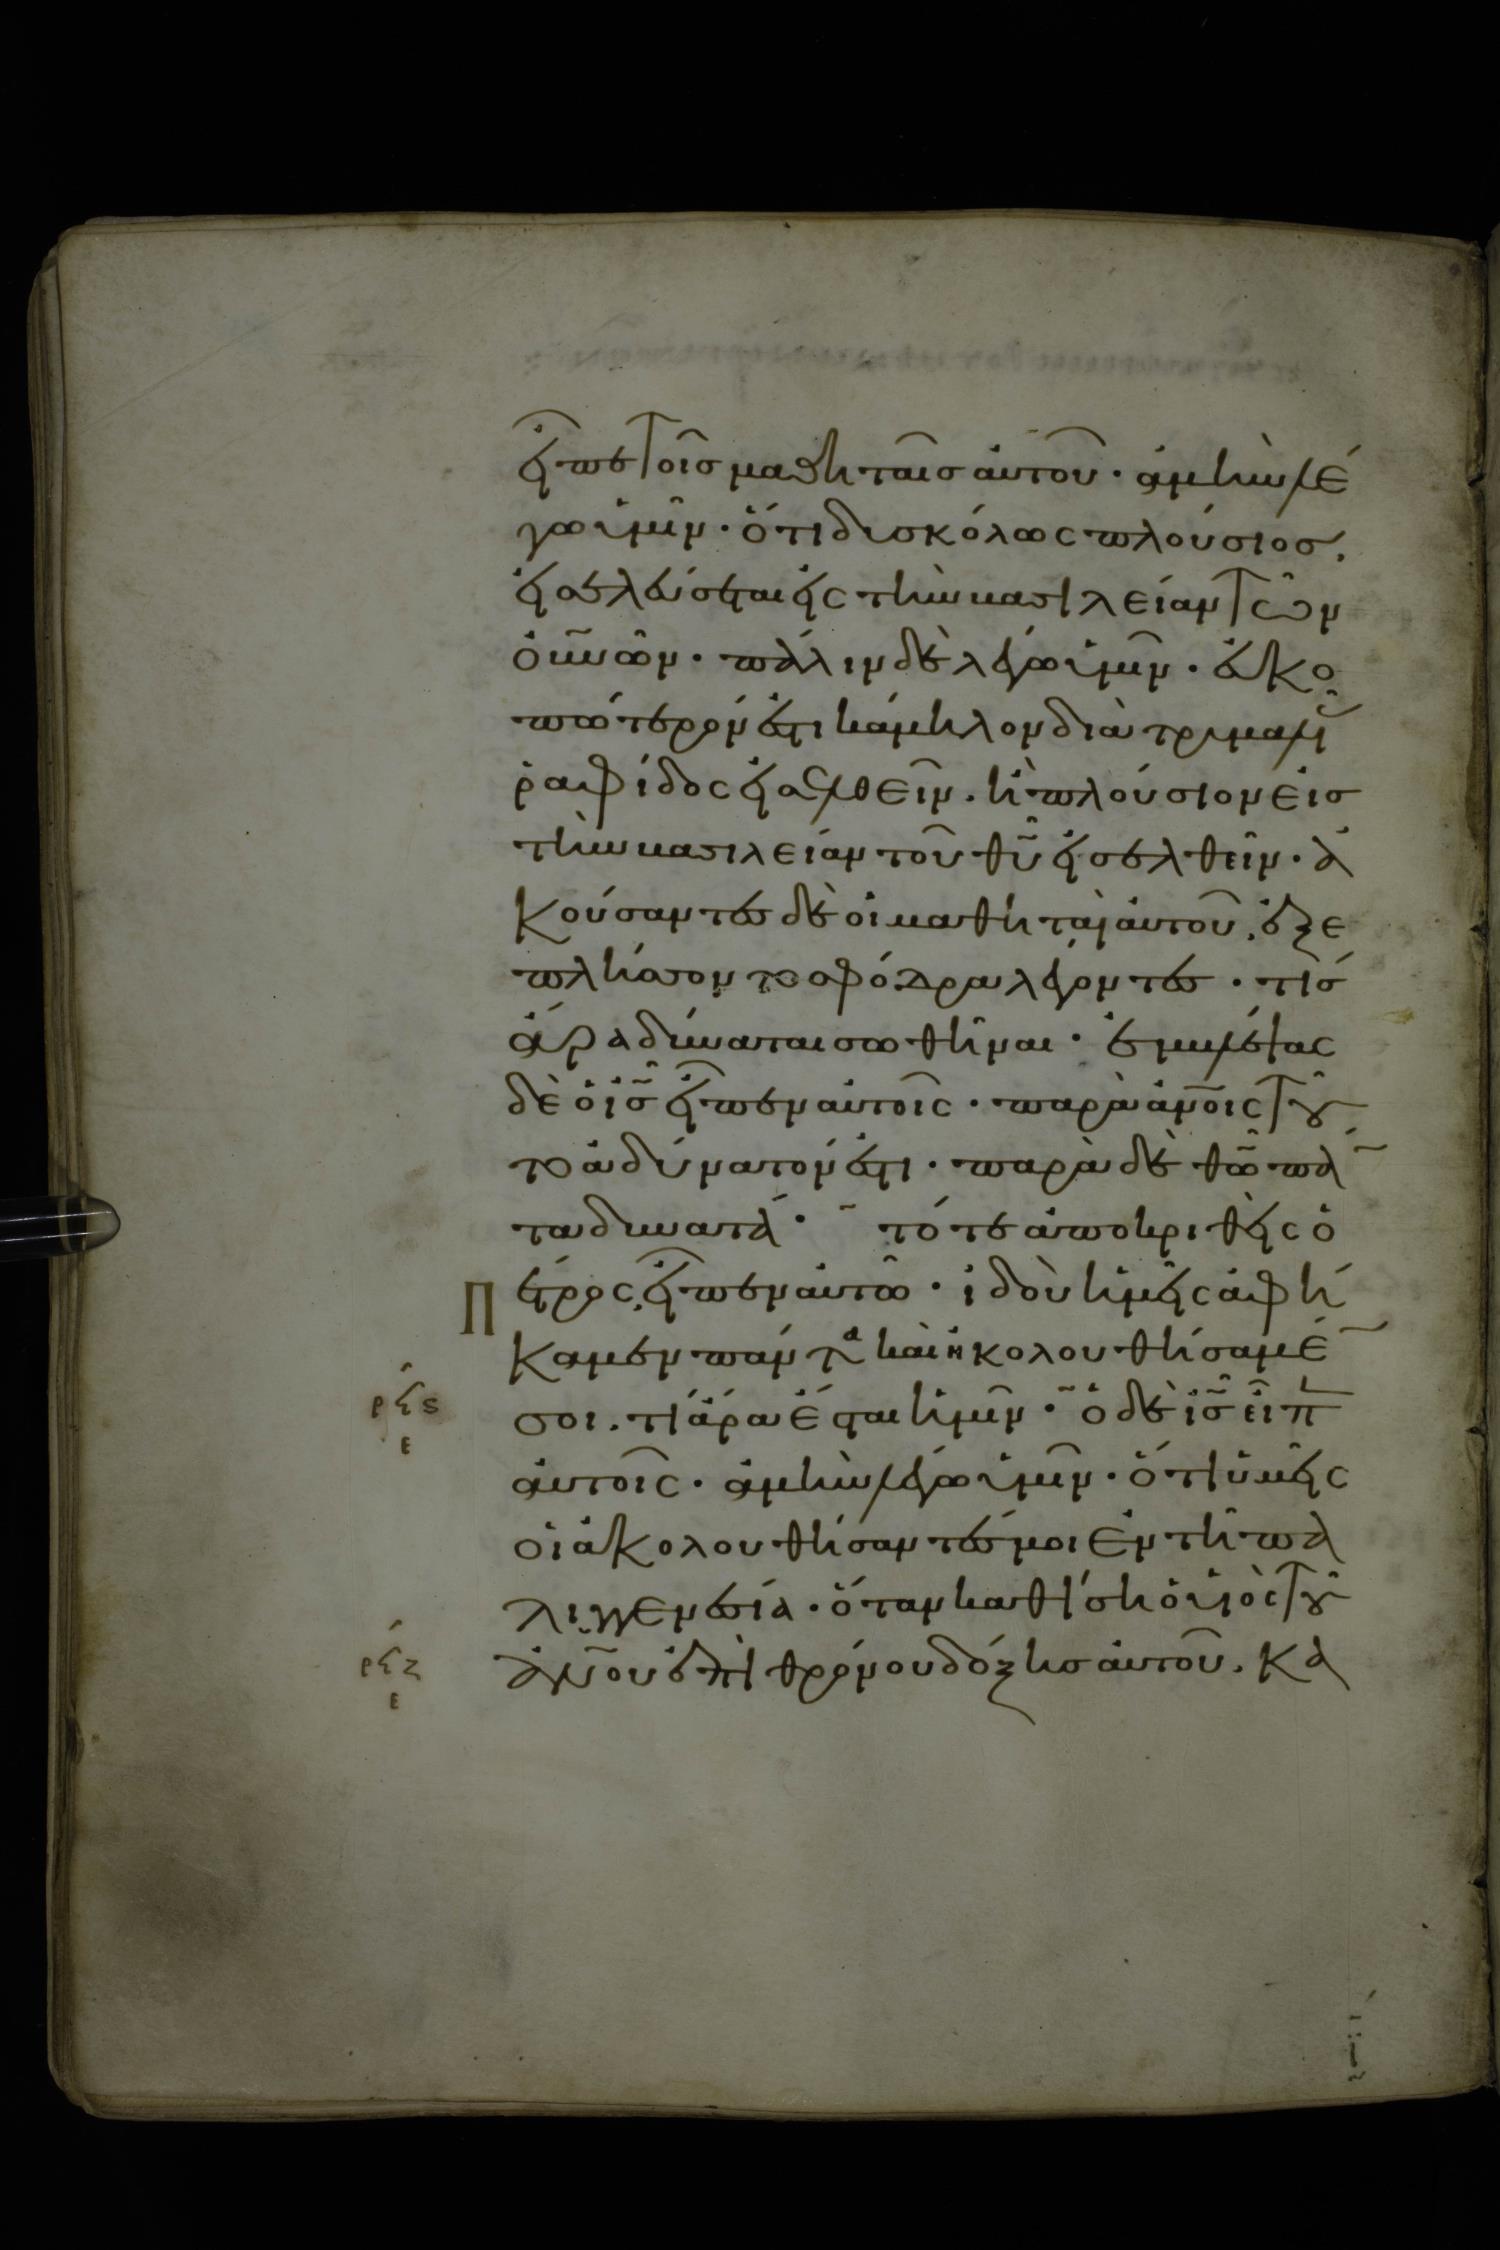 εἶπε τοῖσ μαθηταῖσ αὐτοῦ · ἀμὴν λέ
γω ὑμῖν · ὅτι δυσκόλως πλούσιοσ.
εἰσελεύσεται εἰς τὴν βασιλείαν τῶν
οὐνῶν · πάλιν δὲ λέγω ὑμῖν · εὐκο
πώτερόν ἐστι κάμηλον διὰ τρυμαλι
ραφίδος εἰσελθεῖν · ἢ πλούσιον εἰσ
τὴν βασιλείαν τοῦ θῦ εἰσελθεῖν · ἀ
κούσαντες δὲ οἱ μαθηταὶ αὐτοῦ. ἐξε
πλήσσοντο σφόδρα λέγοντες · τίσ
ἄρα δύναται σωθῆναι · ἐμβλέψας
δὲ ὁ ἰσ εἶπεν αὐτοῖς · παρὰ ἀνοις τοῦ
το ἀδύνατόν ἐστι · παρὰ δὲ θῶ πά
τα δυνατά · τότε ἀποκριθεὶς ὁ
Πέτρος, εἶπεν αὐτῶ · ἰδοὺ ἡμεῖς ἀφή
καμεν πάντα καὶ ἠκολουθήσαμέ
σοι. τί ἄρα ἔσται ἡμῖν · ὁ δὲ ἰσ εἶπ
ρϟς
ε
αὐτοῖς · ἀμὴν λέγω ὑμῖν · ὅτι ὑμεῖς
οἱ ἀκολουθήσαντές μοι ἐν τῆ πα
λιγγενεσία · ὅταν καθίση ὁ υἱὸς τοῦ
ἀνου ἐπὶ θρόνου δόξησ αὐτοῦ. κα
ρϟζ
ε